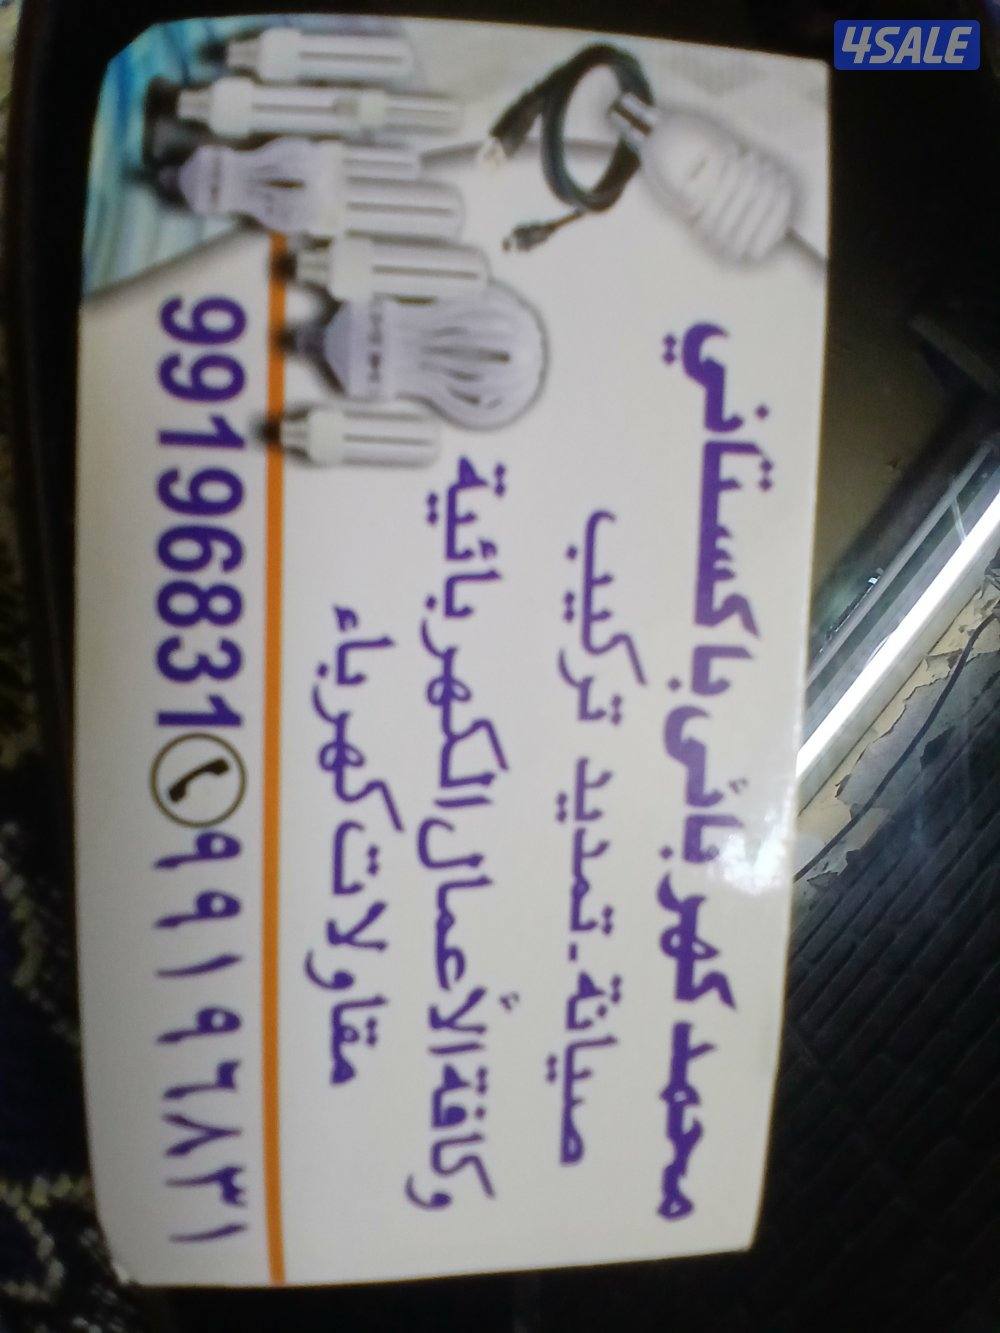 4SALE
محمد كهربائي باكستاني
صيانة - تمديد تركيب
وكافة الأعمال الكهربائية
مقاولات كهرباء
99196831 ٩٩١٩٦٨٣١